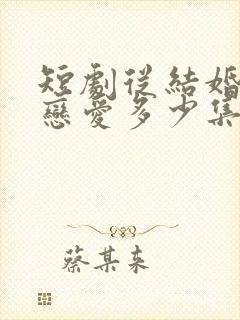 短劇從結婚
戀愛多少集
蔡某某